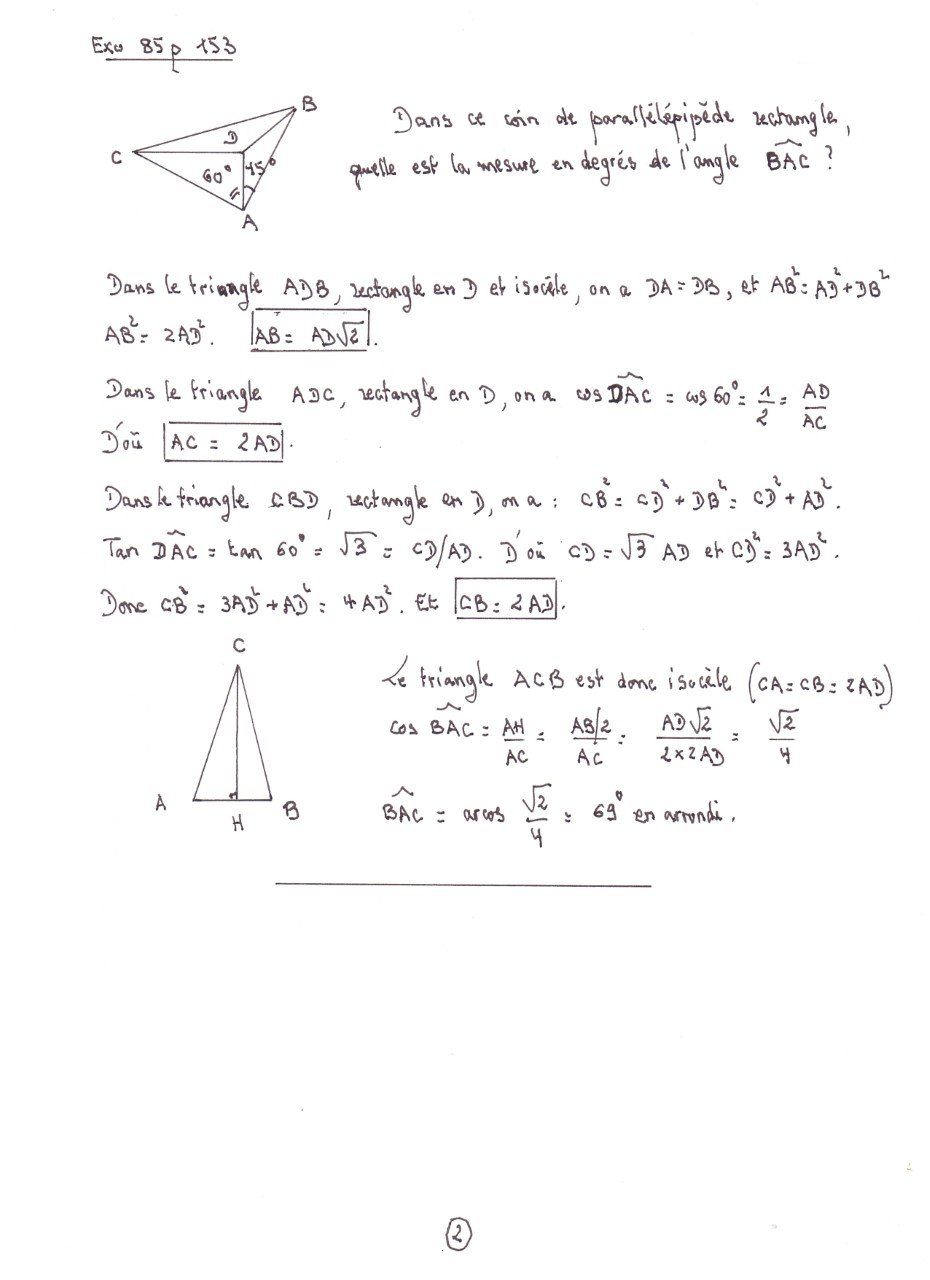 Exo 85 p 153
B
D
C
60° 45°
A
Dans ce coin de parallélépipède rectangle,
quelle est la mesure en degrés de l'angle $\widehat{BAC}$ ?
Dans le triangle ADB, rectangle en D et isocèle, on a DA = DB, et AB² = AD² + DB²
AB² = 2AD². AB = AD√2.
Dans le triangle ADC, rectangle en D, on a cos $\widehat{DAC}$ = cos 60° = $\frac{1}{2}$ = $\frac{AD}{AC}$
D'où AC = 2AD.
Dans le triangle CBD, rectangle en D, on a : CB² = CD² + DB² = CD² + AD².
Tan $\widehat{DAC}$ = tan 60° = √3 = CD/AD. D'où CD = √3 AD et CD² = 3AD².
Donc CB² = 3AD² + AD² = 4AD². Et CB = 2AD.
C
A
H
B
Le triangle ACB est donc isocèle (CA = CB = 2AD)
cos $\widehat{BAC}$ = $\frac{AH}{AC}$ = $\frac{AB/2}{AC}$ = $\frac{AD√2}{2×2AD}$ = $\frac{√2}{4}$
$\widehat{BAC}$ = arcos $\frac{√2}{4}$ = 69° en arrondi.
2